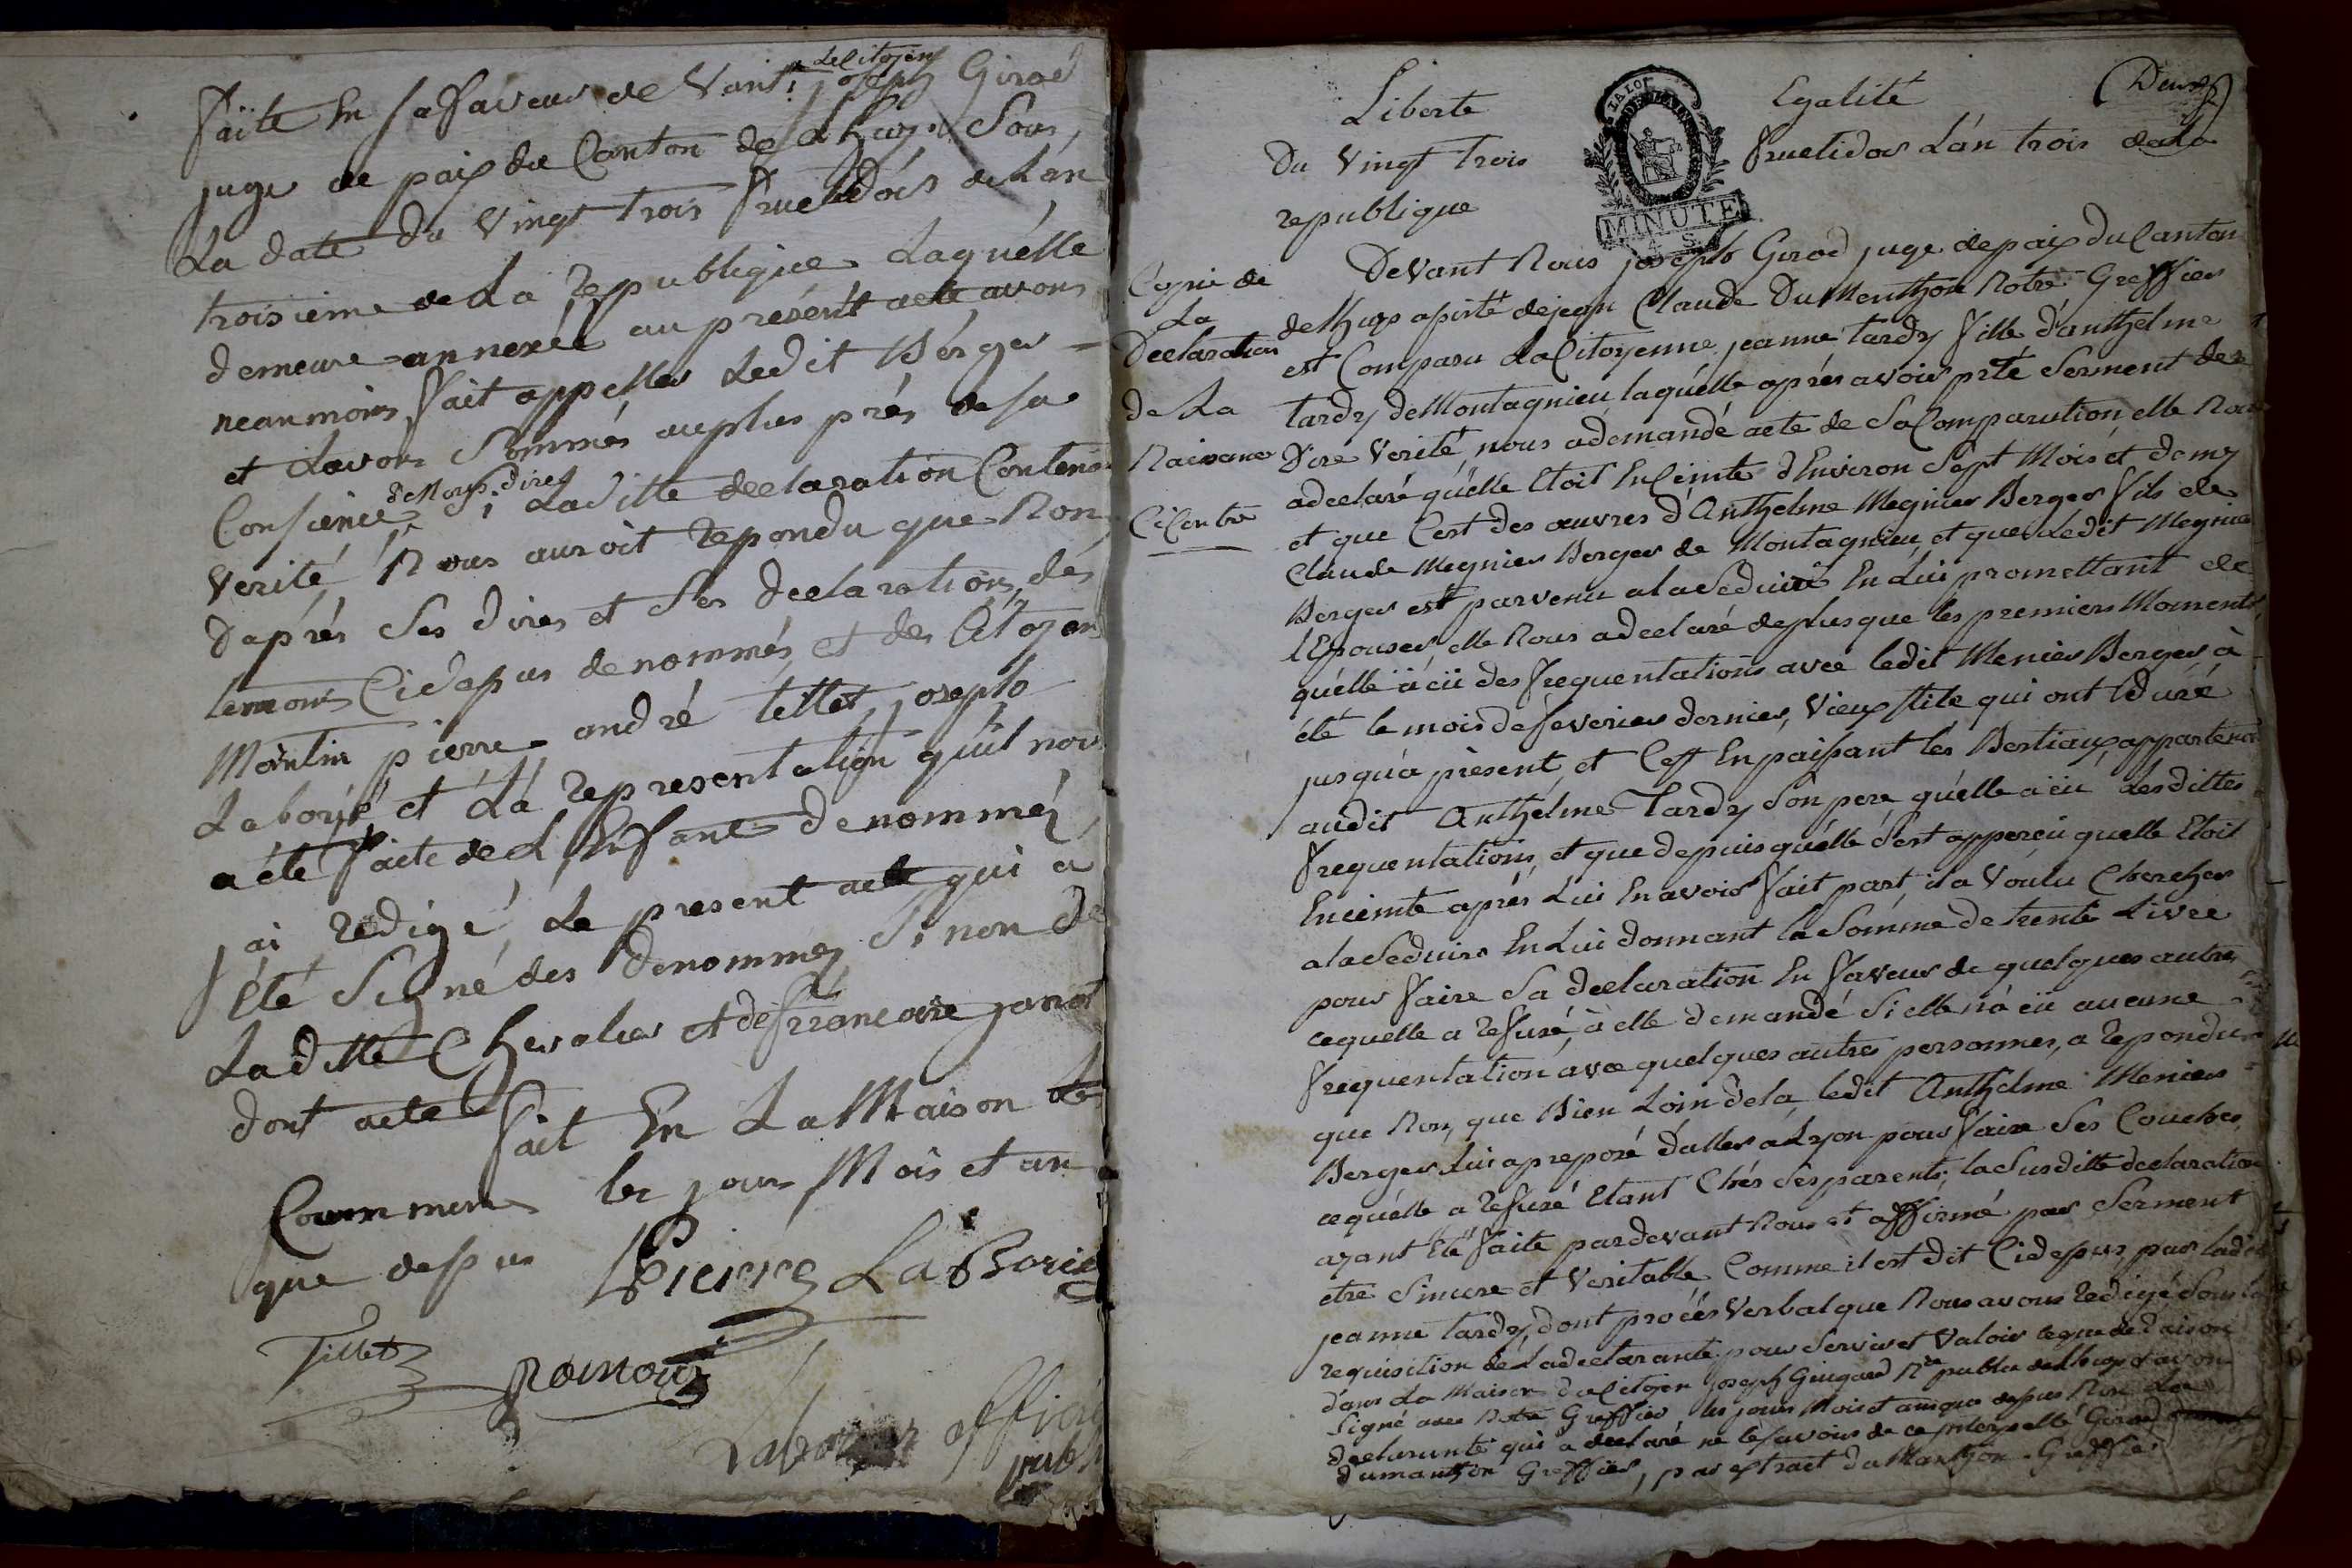 Faite En sa faveur de Vant le Citoyen joseph Girod
juge de paix du Canton de Lhuys Sous
La date du Vingt trois fructidor de L'an
troisieme de La Republique Laquélle
demeure annexée au présent acte avons
neanmoins fait appeller Ledit Berger
et L'avons Sommés au plus prés de sa
Consience de Nous dire Si Laditte declaration Conteno
Verité, Nous auroit Repondu que Non
Daprés Ses dires et Ses declarations, dés
temoins Cidessus denommés et des Citoyens
Moulin pierre andré tillet joseph
Laborie et La Representation qu'il nous
a été faite de L'Enfant denommés
j'ai Redigé Le present acte qui a
Eté Signé des denommés Si non de
Laditte Chevalier et de francoise janot
dont acte
Fait En La Maison
Commune les jour Mois et an
que dessus Pierre La Borie
Tillet
Laborier officier
publi
Liberte Egalité Deux
Du Vingt trois fructidor L'an trois de La
republique
LA LOI
MINUTE
Copie de
La
Declaration
de La
Naissance
Ci Contre
Devant Nous joseph Girod juge de paix du Canton
de Lhuys assisté de jean Claude Dumenthon Notre Greffier
est Comparu La Citoyenne jeanne tardy fille d'anthelme
tardy de Montagnieu laquélle aprés avoir prté Serment de
Dire Verité, nous a demandé acte de Sa Comparution, elle Nous
a declaré qu'elle Etoit Enceinte d'Environ Sept Mois et demy
et que C'est des œuvres d'Anthelme Megnier Berger fils de
Claude Megnier Berger de Montagnieu, et que Ledit Megnier
Berger est parvenu a la Seduire En Lui promettant de
l'Epouser, elle Nous a declaré de plus que les premiers Moments
qu'elle à eü des frequentations avec ledit Menier Berger à
été le mois de fevrier dernier, Vieux Stile qui ont duré
jusqu'a présent, et C'est En paissant les Bestiaux appartenant
audit Anthelme Tardy Son pere qu'elle a eü Lesdittes
frequentations, et que depuis qu'elle S'est apperçu quelle Etoit
Enceinte aprés Lui En avoir fait part il a Voulu Chercher
a la Seduire En Lui donnant la Somme de trente Livre
pour faire Sa declaration En faveur de quelques autres
ce quelle a Refusé, à elle demandé Si elle n'a eü aucune
frequentation avec quelques autres personnes, a Repondu
que Non, que Bien Loin de la, ledit Anthelme Menier
Berger Lui a preposé d'aller a Lyon pour faire Ses Couches
ce qu'elle a Refusé Etant Chés Ses parents; la Susditte declaration
ayant Eté faite pardevant Nous et affirmé par Serment
etre Sincere et Veritable Comme il est dit Cidessus par Laditte
jeanne tardy, dont procés Verbal que Nous avons Redigé Sous la
requisition de La declarante pour Servir et Valoir ce que de Raison
dans La Maison du Citoyen joseph Guigard Nre public de Lhuys et avons
Signé avec Notre Greffier les jours Mois et an que dessus Non La
declarante qui a declaré ne le Savoir de ce Interpellé Girod
dumanthon Greffier, par extrait duManthon Greffier